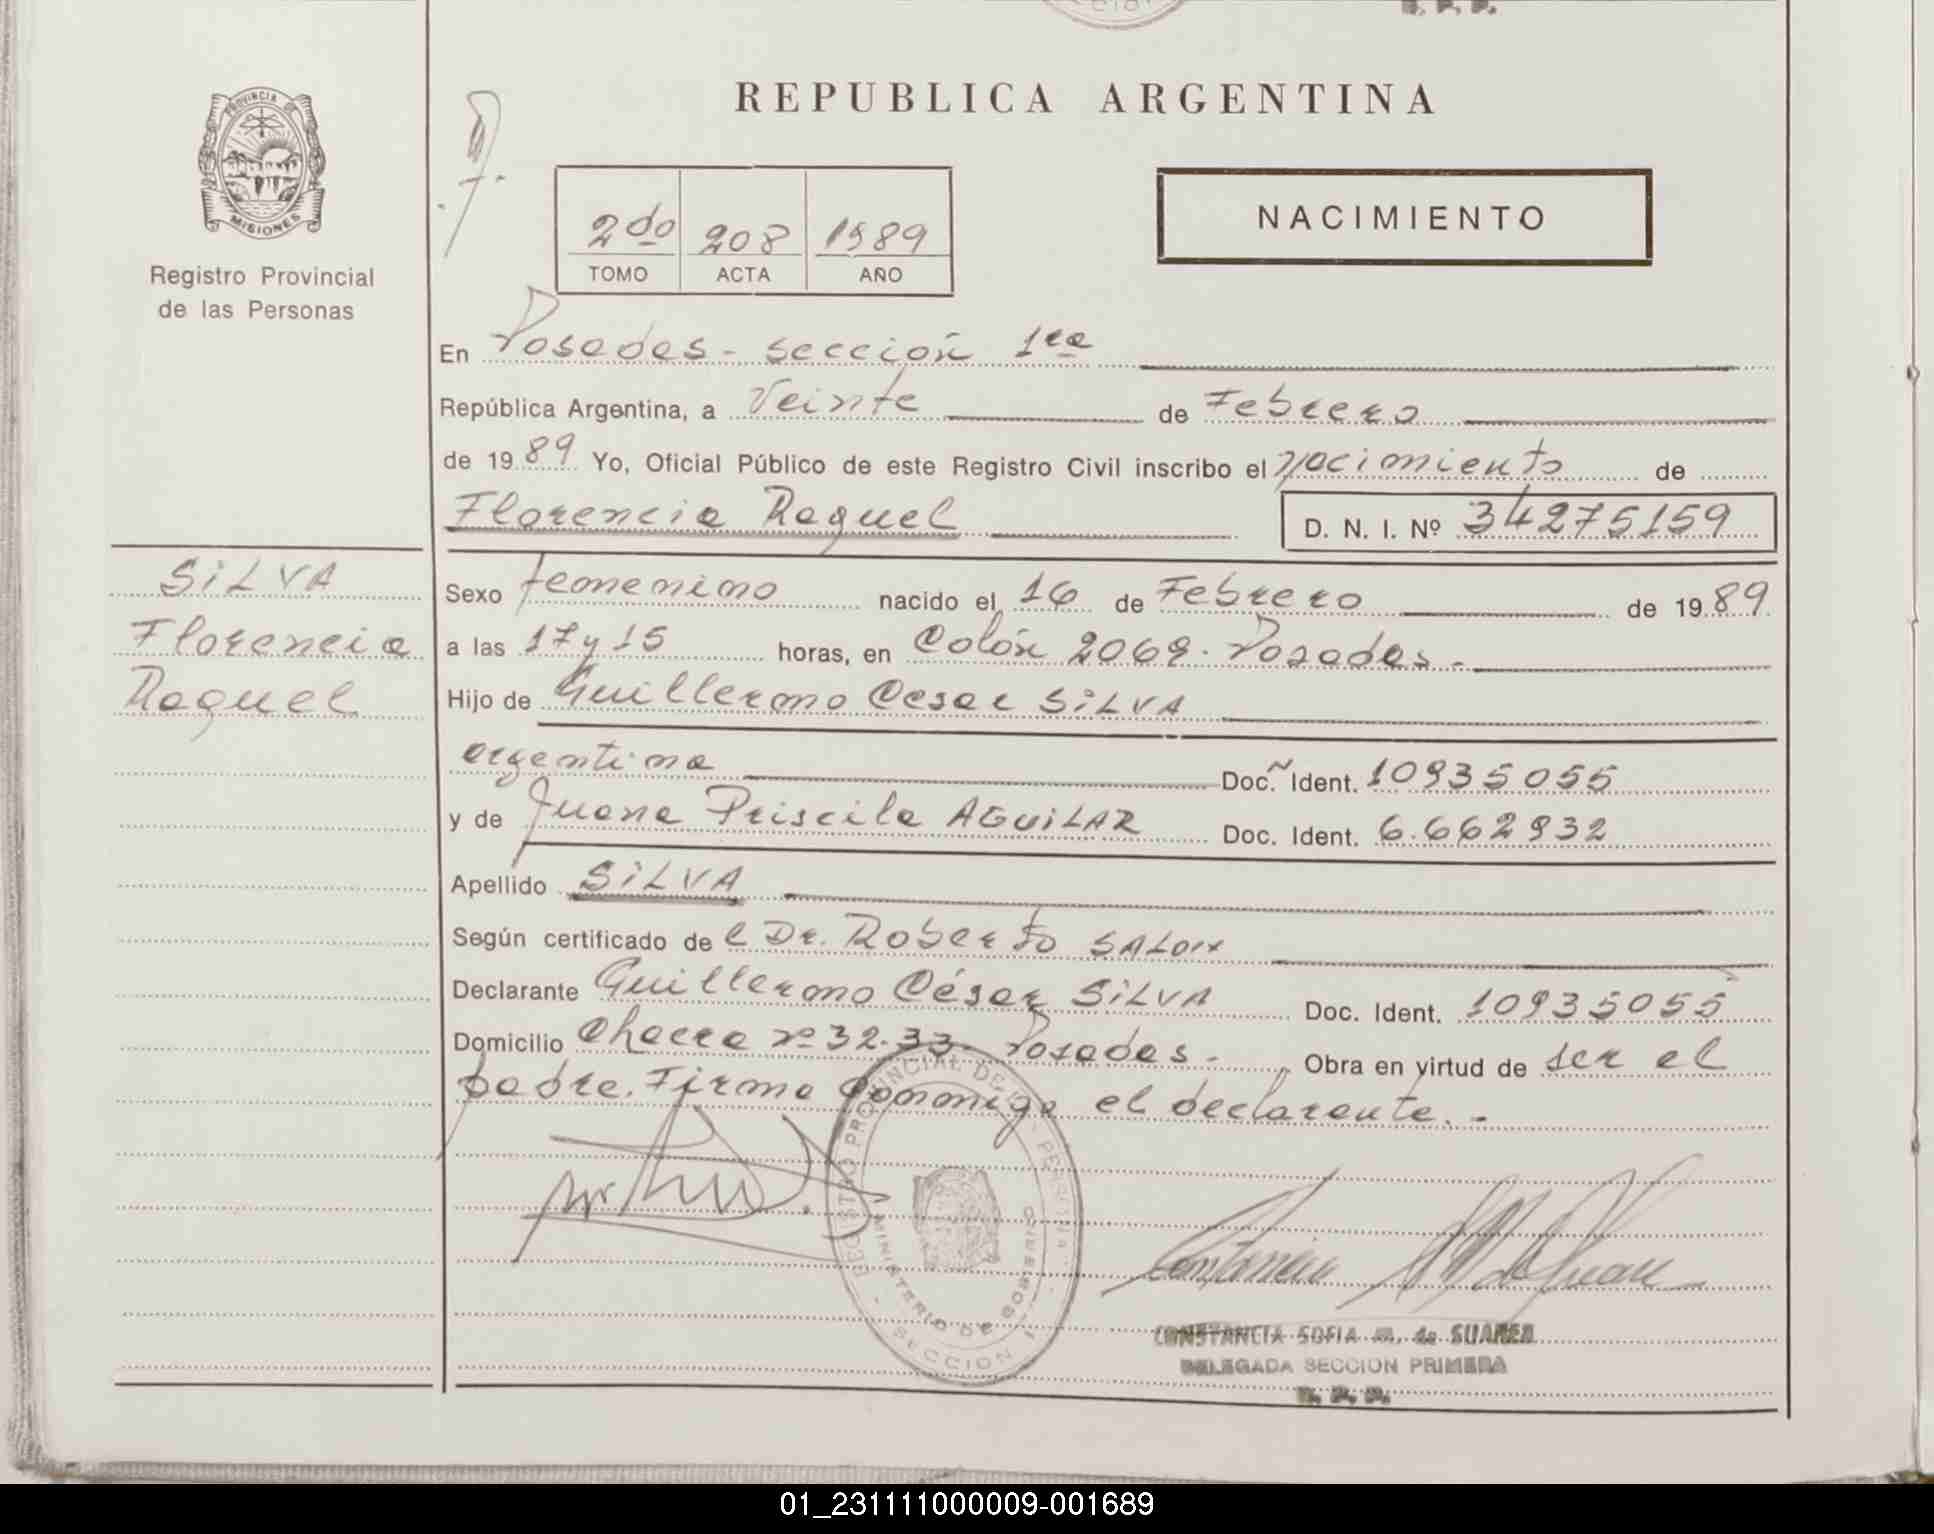 REPUBLICA ARGENTINA
PROVINCIA DE
MISIONES
Registro Provincial
de las Personas
2do 208 1989
TOMO ACTA AÑO
NACIMIENTO
En Posadas - sección 1ra
República Argentina, a Veinte de Febrero
de 1989 Yo, Oficial Público de este Registro Civil inscribo el nacimiento de
Florencia Raquel D. N. I. Nº 34275159
SILVA
Florencia
Raquel
Sexo femenino nacido el 16 de Febrero de 1989
a las 17 y 15 horas, en Colón 2069. Posadas.-
Hijo de Guillermo Cesar SILVA
argentina Doc. Ident. 10935055
y de Juana Priscila AGUILAR Doc. Ident. 6.662932
Apellido SILVA
Según certificado de l Dr. Roberto
Declarante Guillermo César SILVA Doc. Ident. 10935055
Domicilio Chacra nº 32-33- Posadas.- Obra en virtud de ser el
padre. Firma conmigo el declarante.-
REGISTRO PROVINCIAL DE LAS PERSONAS
MINISTERIO DE GOBIERNO
SECCION
CONSTANCIA SOFIA M. de SUAREZ
DELEGADA SECCION PRIMERA
R. P. P.
01_231111000009-001689